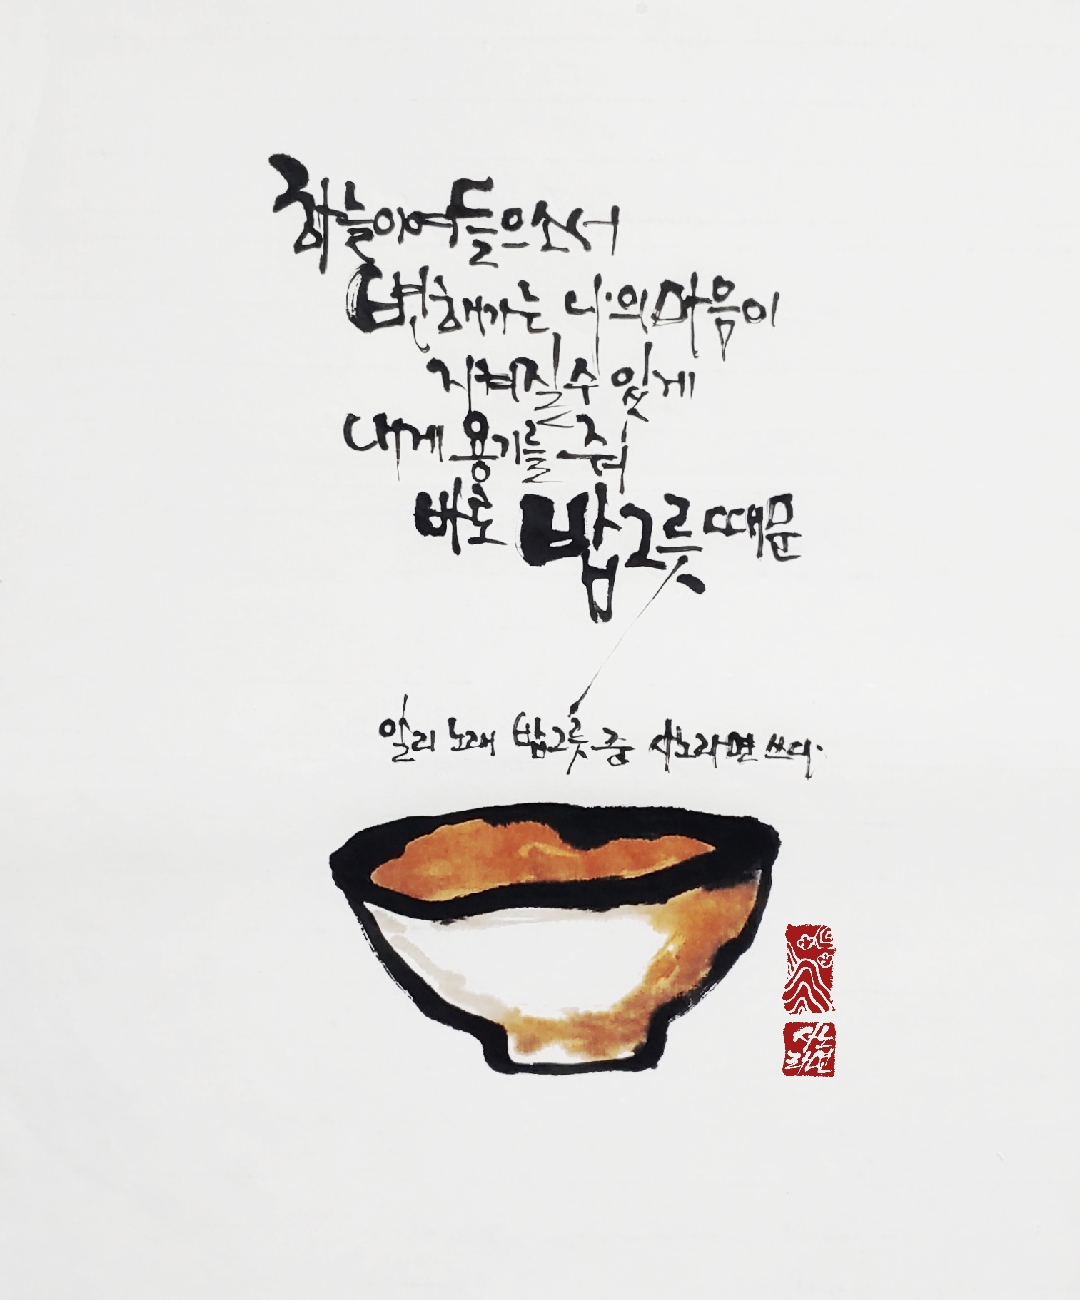 하늘이여 들으소서
변해가는 나의 마음이
지켜질 수 있게
내게 용기를 줘
바로 밥그릇 때문
알리 노래 밥그릇 중 시노라면 쓰다.